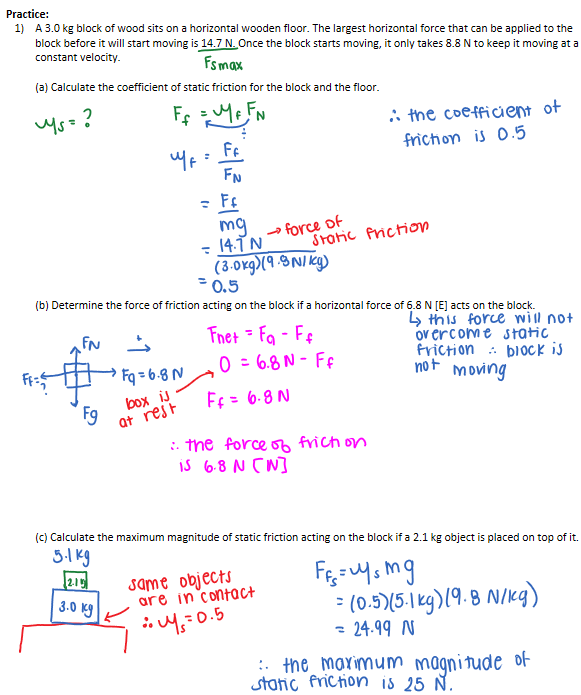 Practice:
1) A 3.0 kg block of wood sits on a horizontal wooden floor. The largest horizontal force that can be applied to the
block before it will start moving is 14.7 N. Once the block starts moving, it only takes 8.8 N to keep it moving at a
constant velocity.
Fsmax
(a) Calculate the coefficient of static friction for the block and the floor.
μs = ?
Ff = μf FN
μf = Ff
FN
= Ff
mg
= 14.7 N → force of static friction
(3.0kg)(9.8N/kg)
= 0.5
∴ the coefficient of
friction is 0.5
(b) Determine the force of friction acting on the block if a horizontal force of 6.8 N [E] acts on the block.
↳ this force will not
overcome static
friction ∴ block is
not moving
FN
+
Ff=?
Fa = 6.8 N
Fg
box is
at rest
Fnet = Fa - Ff
0 = 6.8 N - Ff
Ff = 6.8 N
∴ the force of friction
is 6.8 N [W]
(c) Calculate the maximum magnitude of static friction acting on the block if a 2.1 kg object is placed on top of it.
5.1 kg
2.1
3.0 kg
same objects
are in contact
∴ μs = 0.5
Ffs = μs mg
= (0.5)(5.1kg)(9.8 N/kg)
= 24.99 N
∴ the maximum magnitude of
static friction is 25 N.